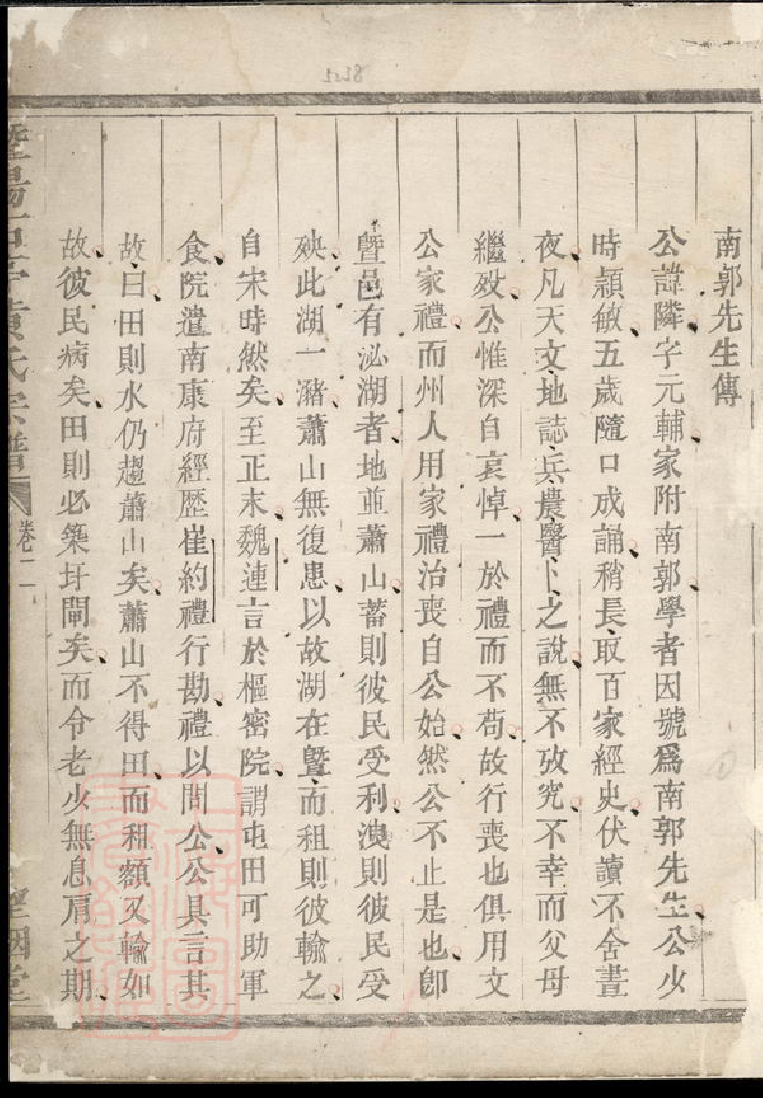 南郭先生傳
公諱隣字元輔家附南郭學者因號爲南郭先生公少
時穎敏五歲隨口成誦稍長取百家經史伏讀不舍晝
夜凡天文地誌兵農醫卜之說無不攷究不幸而父母
繼歿公惟深自哀悼一於禮而不苟故行喪也俱用文
公家禮而州人用家禮治喪自公始然公不止是也卽
曁邑有泌湖者地並蕭山蓄則彼民受利洩則彼民受
殃此湖一瀦蕭山無復患以故湖在曁而租則彼輸之
自宋時然矣至正末魏連言於樞密院謂屯田可助軍
食院遣南康府經歷崔約禮行勘禮以問公公具言其
故曰田則水仍趨蕭山矣蕭山不得田而租額又輸如
故彼民病矣田則必築圩閘矣而令老少無息肩之期
黃氏宗譜
卷二